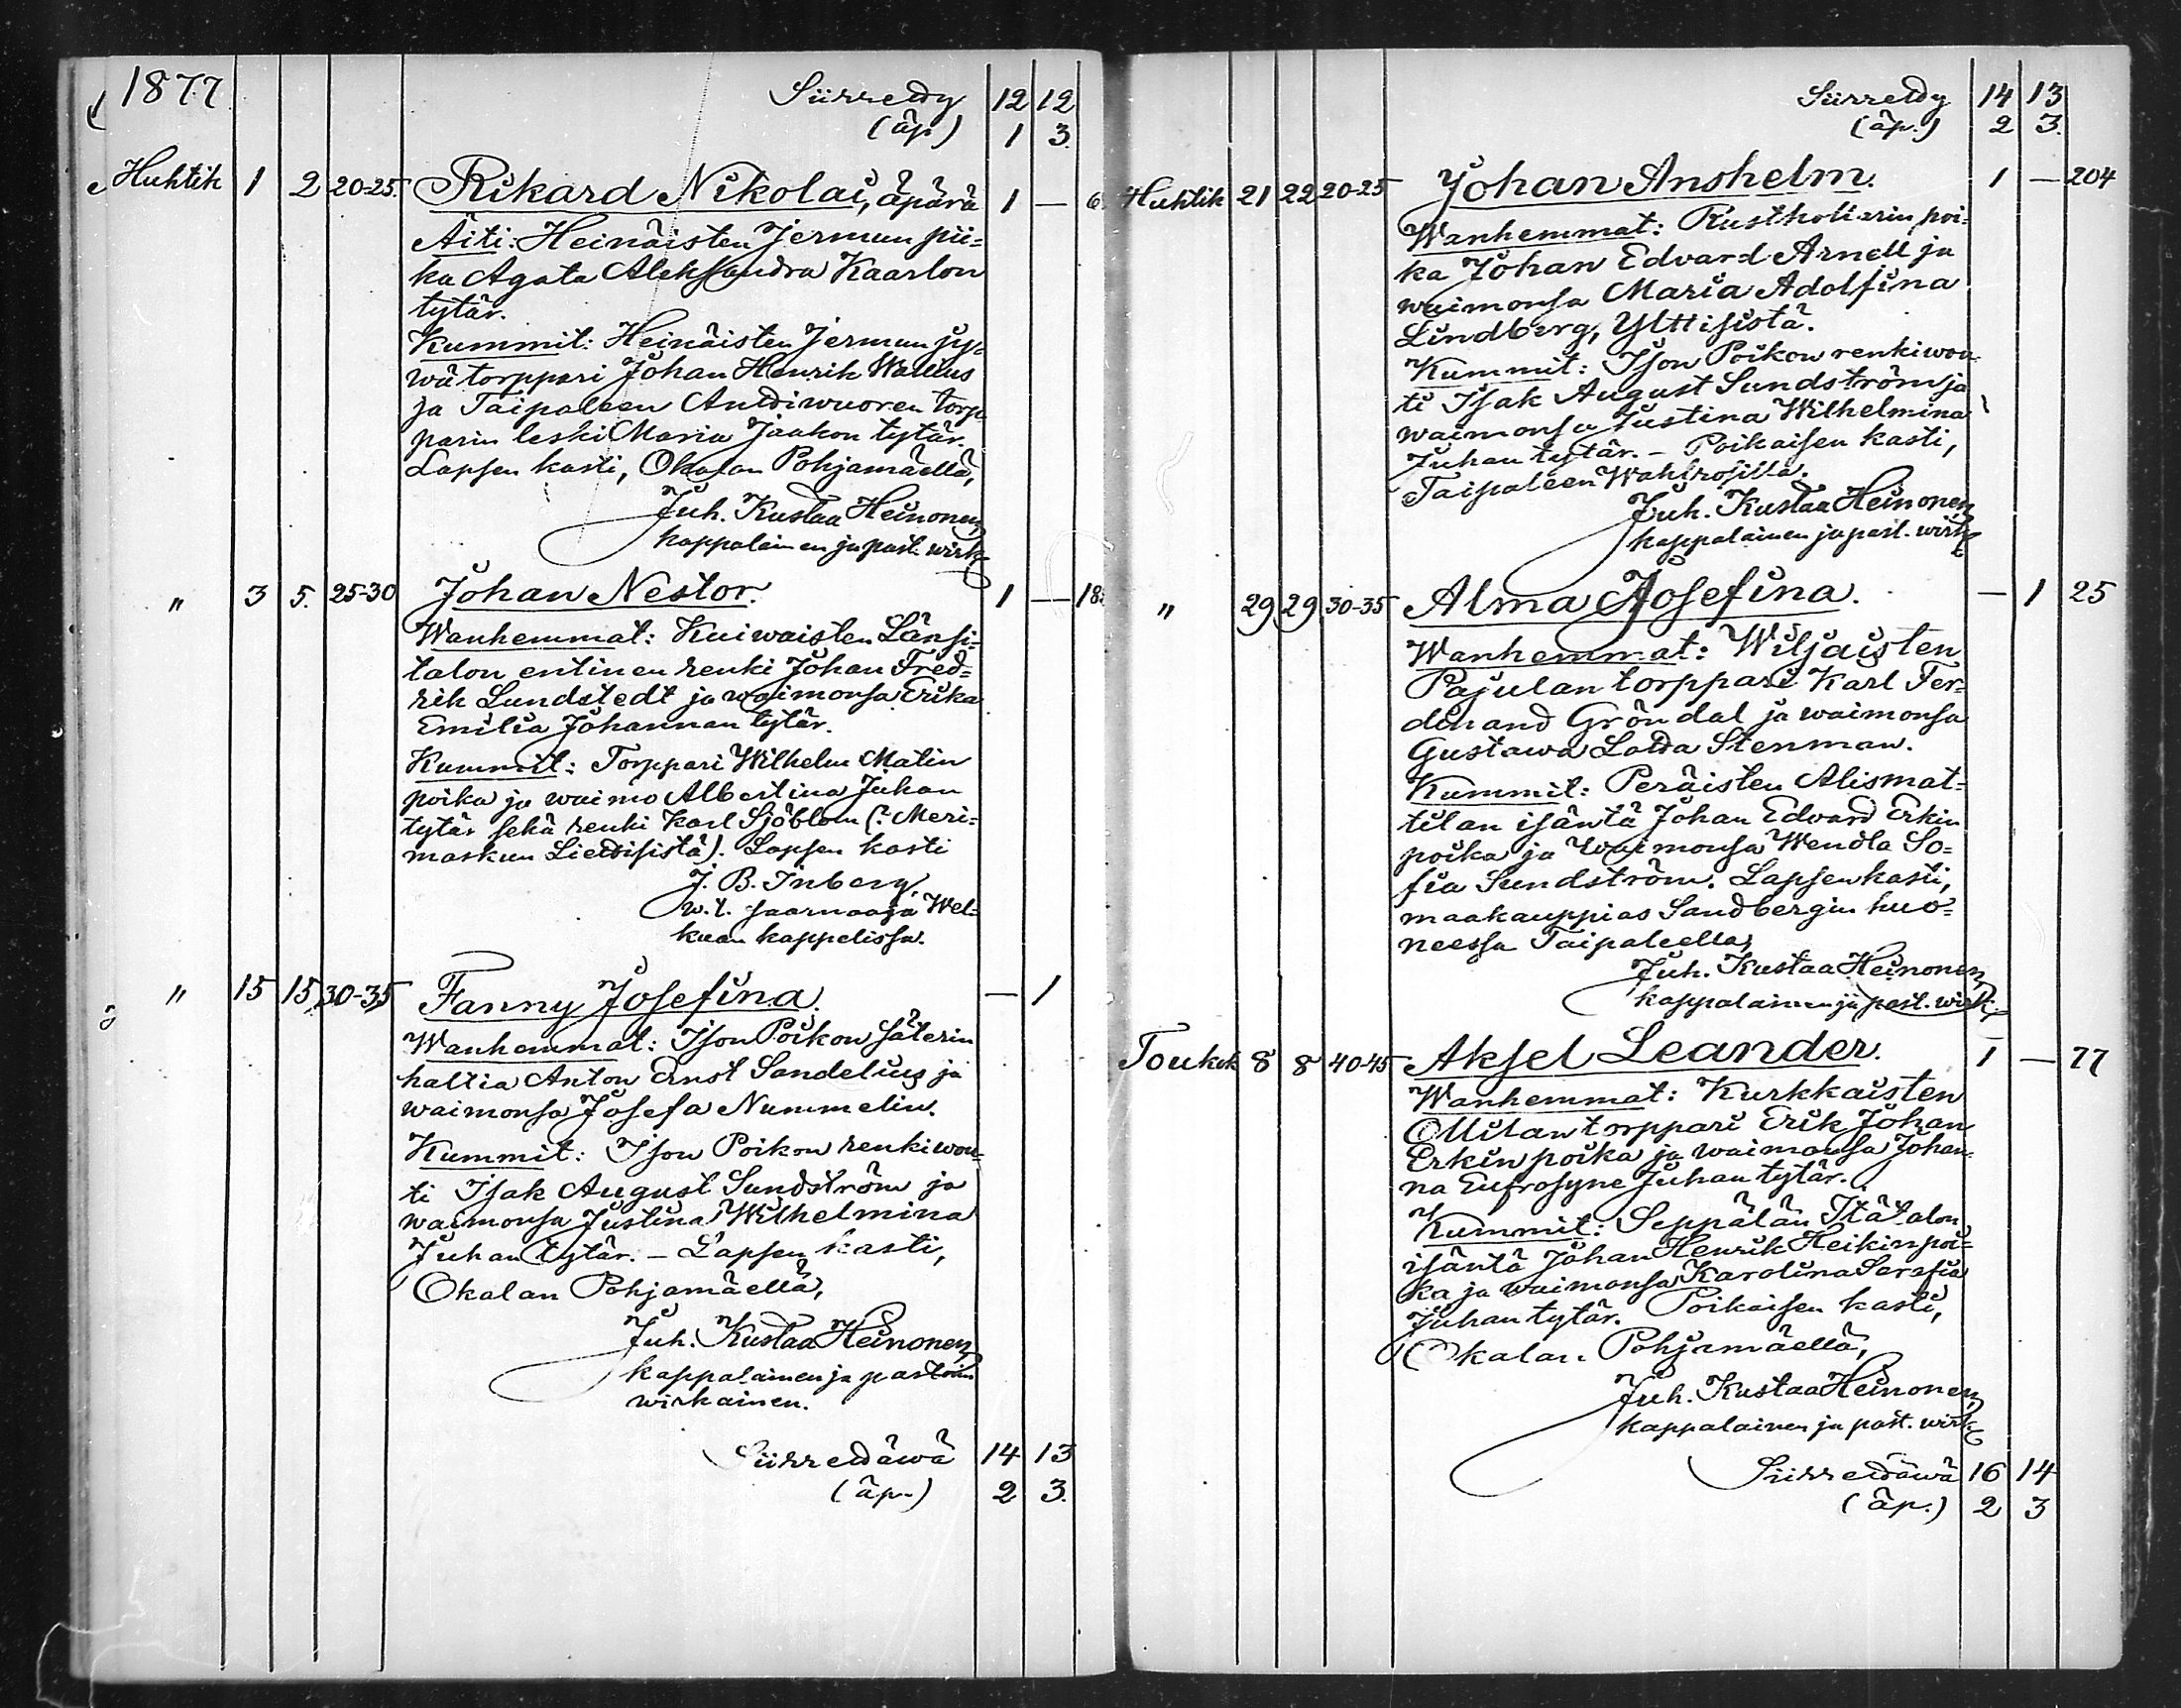 1877
Siirretty 12 12
(äp) 1 3.
Huhtik 1 2 20-25. Rikard Nikolai, äpärä 1 — 6
Äiti: Heinäisten Jermun pii=
ka Agata Aleksandra Kaarlon
tytär.
Kummit: Heinäisten Jermun jy=
wätorppari Johan Henrik Wallius
ja Taipaleen Anttiwuoren torp=
parin leski Maria Jaakon tytär.
Lapsen kasti, Okalan Pohjamäellä,
Juh. Kustaa Heinonen,
kappalainen ja past. wirk.
" 3 5. 25-30 Johan Nestor. 1 — 18
Wanhemmat: Kuiwaisten Länsi=
talon entinen renki Johan Fred=
rik Lundstedt ja waimonsa Erika
Emilia Johannan tytär.
Kummit: Torppari Wilhelm Matin
poika ja waimo Albertina Juhan
tytär sekä renki Karl Sjöblom (: Meri=
maskun Liettisistä). Lapsen kasti
J. B. Inberg,
w.t. saarnaaja Wel=
kuan kappelissa.
" 15 15 30-35 Fanny Josefina. — 1
Wanhemmat: Ison Poikon säterin
haltia Anton Ernst Sandelius ja
waimonsa Josefa Nummelin.
Kummit: Ison Poikon renkiwou=
ti Isak August Sundström ja
waimonsa Justina Wilhelmina
Juhan tytär. — Lapsen kasti,
Okalan Pohjamäellä,
Juh. Kustaa Heinonen,
kappalainen ja pastorin
wirkainen.
Siirrettäwä 14 13
(äp.) 2 3.
Siirretty 14 13
(äp.) 2 3.
Huhtik 21 22 20-25 Johan Anshelm. 1 — 204
Wanhemmat: Rusthollarin poi=
ka Johan Edvard Arnell ja
waimonsa Maria Adolfina
Lindberg, Ylttisistä.
Kummit: Ison Poikon renkiwou
ti Isak August Sundström ja
waimonsa Justina Wilhelmina
Juhan tytär. — Poikaisen kasti,
Taipaleen
Juh. Kustaa Heinonen,
kappalainen ja past. wirk.
" 29 29 30-35 Alma Josefina. — 1 25
Wanhemmat: Wiljaisten
Pajulan torppari Karl Fer=
dinand Gröndal ja waimonsa
Gustawa Lotta Stenman.
Kummit: Peräisten Alismat=
tilan isäntä Johan Edvard Erkin
poika ja waimonsa Wendla So=
fia Sundström. Lapsen kasti,
maakauppias Sandbergin huo=
neessa Taipaleella,
Juh. Kustaa Heinonen,
kappalainen ja past. wirk.
Toukok 8 8 40-45 Aksel Leander. 1 — 77
Wanhemmat: Kurkkaisten
Ollilan torppari Erik Johan
Erkin poika ja waimonsa Johan=
na Eufrosyne Juhan tytär.
Kummit: Seppälän Itätalon
isäntä Johan Henrik Heikin poi=
ka ja waimonsa Karolina Serafia
Juhan tytär. Poikaisen kasti,
Okalan Pohjamäellä,
Juh. Kustaa Heinonen,
kappalainen ja past. wirk.
Siirrettäwä 16 14
(äp.) 2 3